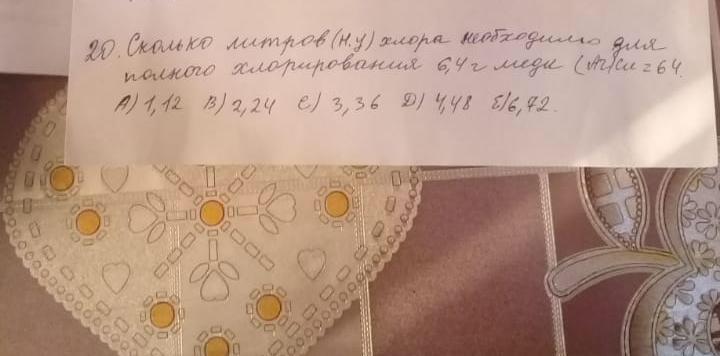 20. Сколько литров (н.у) хлора необходимо для
полного хлорирования 6,4 г меди (Ar)Cu = 64.
А) 1,12 В) 2,24 С) 3,36 D) 4,48 Е) 6,72.